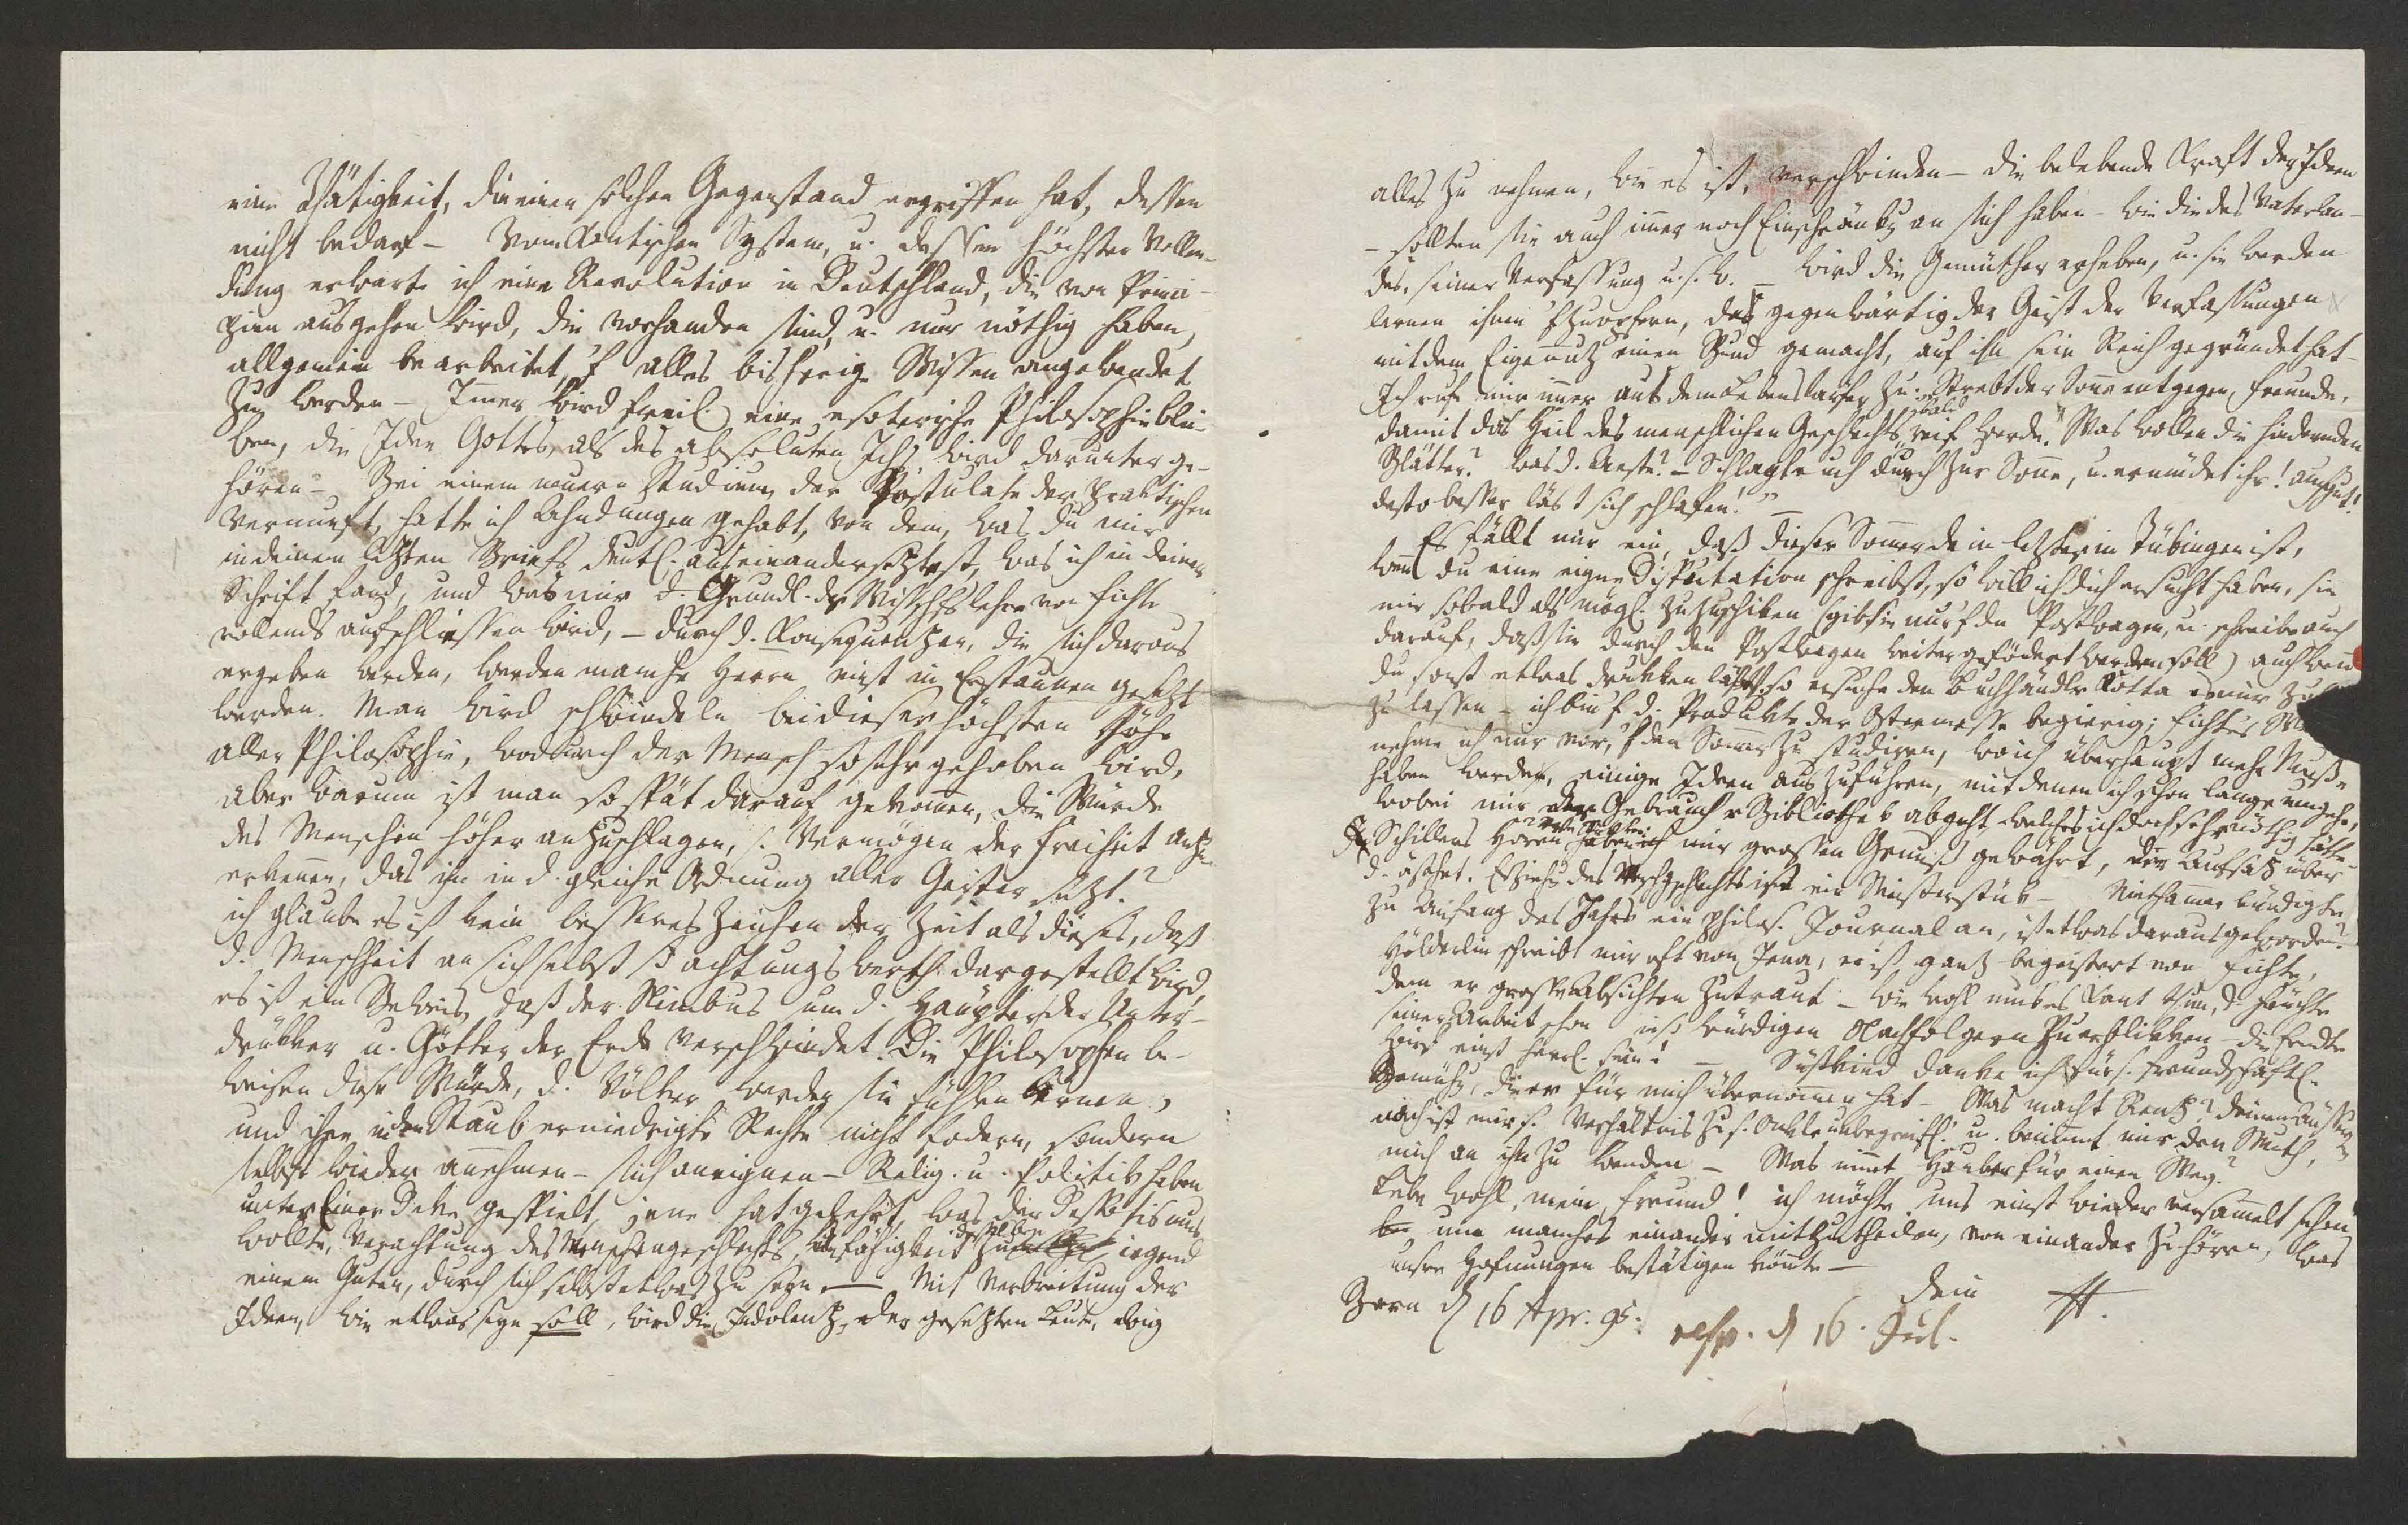 eine Thätigkeit, die einen solchen Gegenstand ergriffen hat, dessen
nicht bedarf – Vom Kantischen System, u. dessen höchster Vollen-
dung erwarte ich eine Revolution in Deutschland, die von Princi-
pien ausgehen wird, die vorhanden sind, u. nur nöthig haben,
allgemein bearbeitet, auf alles bisherige Wissen angewendet
zu werden – Immer wird freil. eine esoterische Philosophie blei-
ben, die Idee Gottes als des absoluten Ichs wird darunter ge-
hören – Bei einem neuern Studium der Postulate der praktischen
Vernunft, hatte ich Ahndungen gehabt, von dem, was du mir
in deinem letzten Briefe deutl. auseinandersetztest, was ich in deiner
Schrift fand, und was mir d. Grundl. der Wissenschftslehre von Fichte
vollends aufschliessen wird, – durch d. Konsequenzen, die sich daraus
ergeben werden, werden manche Herrn einst in Erstaunen gesetzt
werden. Man wird schwindeln bei dieser höchsten Höhe
aller Philosophie, wodurch der Mensch so sehr gehoben wird,
aber warum ist man so spät darauf gekommen, die Würde
des Menschen höher anzuschlagen, s. Vermögen der Freiheit anzu-
erkennen, das ihn in d. gleiche Ordnung aller Geister setzt?
ich glaube es ist kein besseres Zeichen der Zeit als dieses, daß
d. Menschheit an sich selbst so achtungswerth dargestellt wird,
es ist ein Beweis, daß der Nimbus um d. Häupter der Unter-
drükker u. Götter der Erde verschwindet. Die Philosophen be-
weisen diese Würde, d. Völker werden sie fühlen lernen,
und ihre in den Staub erniedrigte Rechte nicht fodern, sondern
selbst wieder annehmen – sich aneignen – Relig. u. Politik haben
unter Einer Deke gespielt, jene hat gelehrt, was der Despotismus
wollte, Verachtung des Menschengeschlechts, Unfähigkeit desselben zu irgend
einem Guten, durch sich selbst etwas zu seyn – Mit Verbreitung der
Ideen, wie etwas seyn soll, wird die Indolenz der gesetzten Leute, ewig
alles zu nehmen, wie es ist, verschwinden – die belebende Kraft der Ideen
– sollten sie auch immer noch Einschränkg an sich haben – wie die des Vaterlan-
des, seiner Verfassung u.s.w. – wird die Gemüther erheben, u. sie werden
lernen ihnen aufzuopfern, da gegenwärtig der Geist der Verfassungen
mit dem Eigennutz einen Bund gemacht, auf ihn sein Reich gegründet hat –
Ich rufe mir immer aus dem Lebensläufer zu: „Strebt der Sonne entgegen, Freunde,
damit das Heil des menschlichen Geschlechts bald reif werde! Was wollen die hindernden
Blätter? was d. Aeste? – Schlagt euch durch zur Sonne, u. ermüdet ihr! auch gut!
desto besser läst sich schlafen!" –
Es fällt mir ein, daß dieser Sommer dein letzter in Tübingen ist,
wenn du eine eigne Disputation schreibst, so will ich dich ersucht haben, sie
mir sobald als mögl. zuzuschiken (gib sie nur auf den Postwagen, u. schreibe auch
darauf, daß sie durch den Postwagen weiter gefödert werden soll) auch wenn
du sonst etwas drukken läßst, so ersuche den Buchhändlr Kotta es mir zu
zu lassen – ich bin auf d. Produkte der Ostermesse begierig; Fichte's
nehme ich mir vor, auf den Sommer zu studiren, wo ich überhaupt mehr Musse
haben werde, einige Ideen auszuführen, mit denen ich schon lange umgehe,
wobei mir der Gebrauch r Bibliothek abgeht, welches ich doch sehr nöthig hätte –
Schillers Horen, haben mir grossen Genuß gewährt, der Aufsatz über
d. ästhet. Erziehg des Menschgeschlechts ist ein Meisterstük – Niethammer kündigte
zu Anfang des Jahrs ein philos. Journal an, ist etwas daraus geworden?
Hölderlin schreibt mir oft von Jena, er ist ganz begeistert von Fichte,
dem er grosse Absichten zutraut – wie wohl muß es Kant thun, d. Früchte
seiner Arbeit schon in so würdigen Nachfolgern zu erblikken – die Erndte
wird einst herrl. sein! – Süskind danke ich für s. freundschaftl.
Bemühg, die er für mich übernommen hat – Was macht Renz? deinen Äußerungen
nach ist mir s. Verhältniß zu s. Onkle unbegreifl. u. benimmt mir den Muth,
mich an ihn zu wenden – Was nimmt Hauber für einen Weg?
Lebe wohl, mein Freund! ich möchte uns einst wieder versammelt sehen
um manches einander mitzutheilen, von einander zu hören, was
unsre Hofnungen bestätigen könnte –
Dein H.
Bern d 16 Apr. 95.
resp. d 16. Jul.